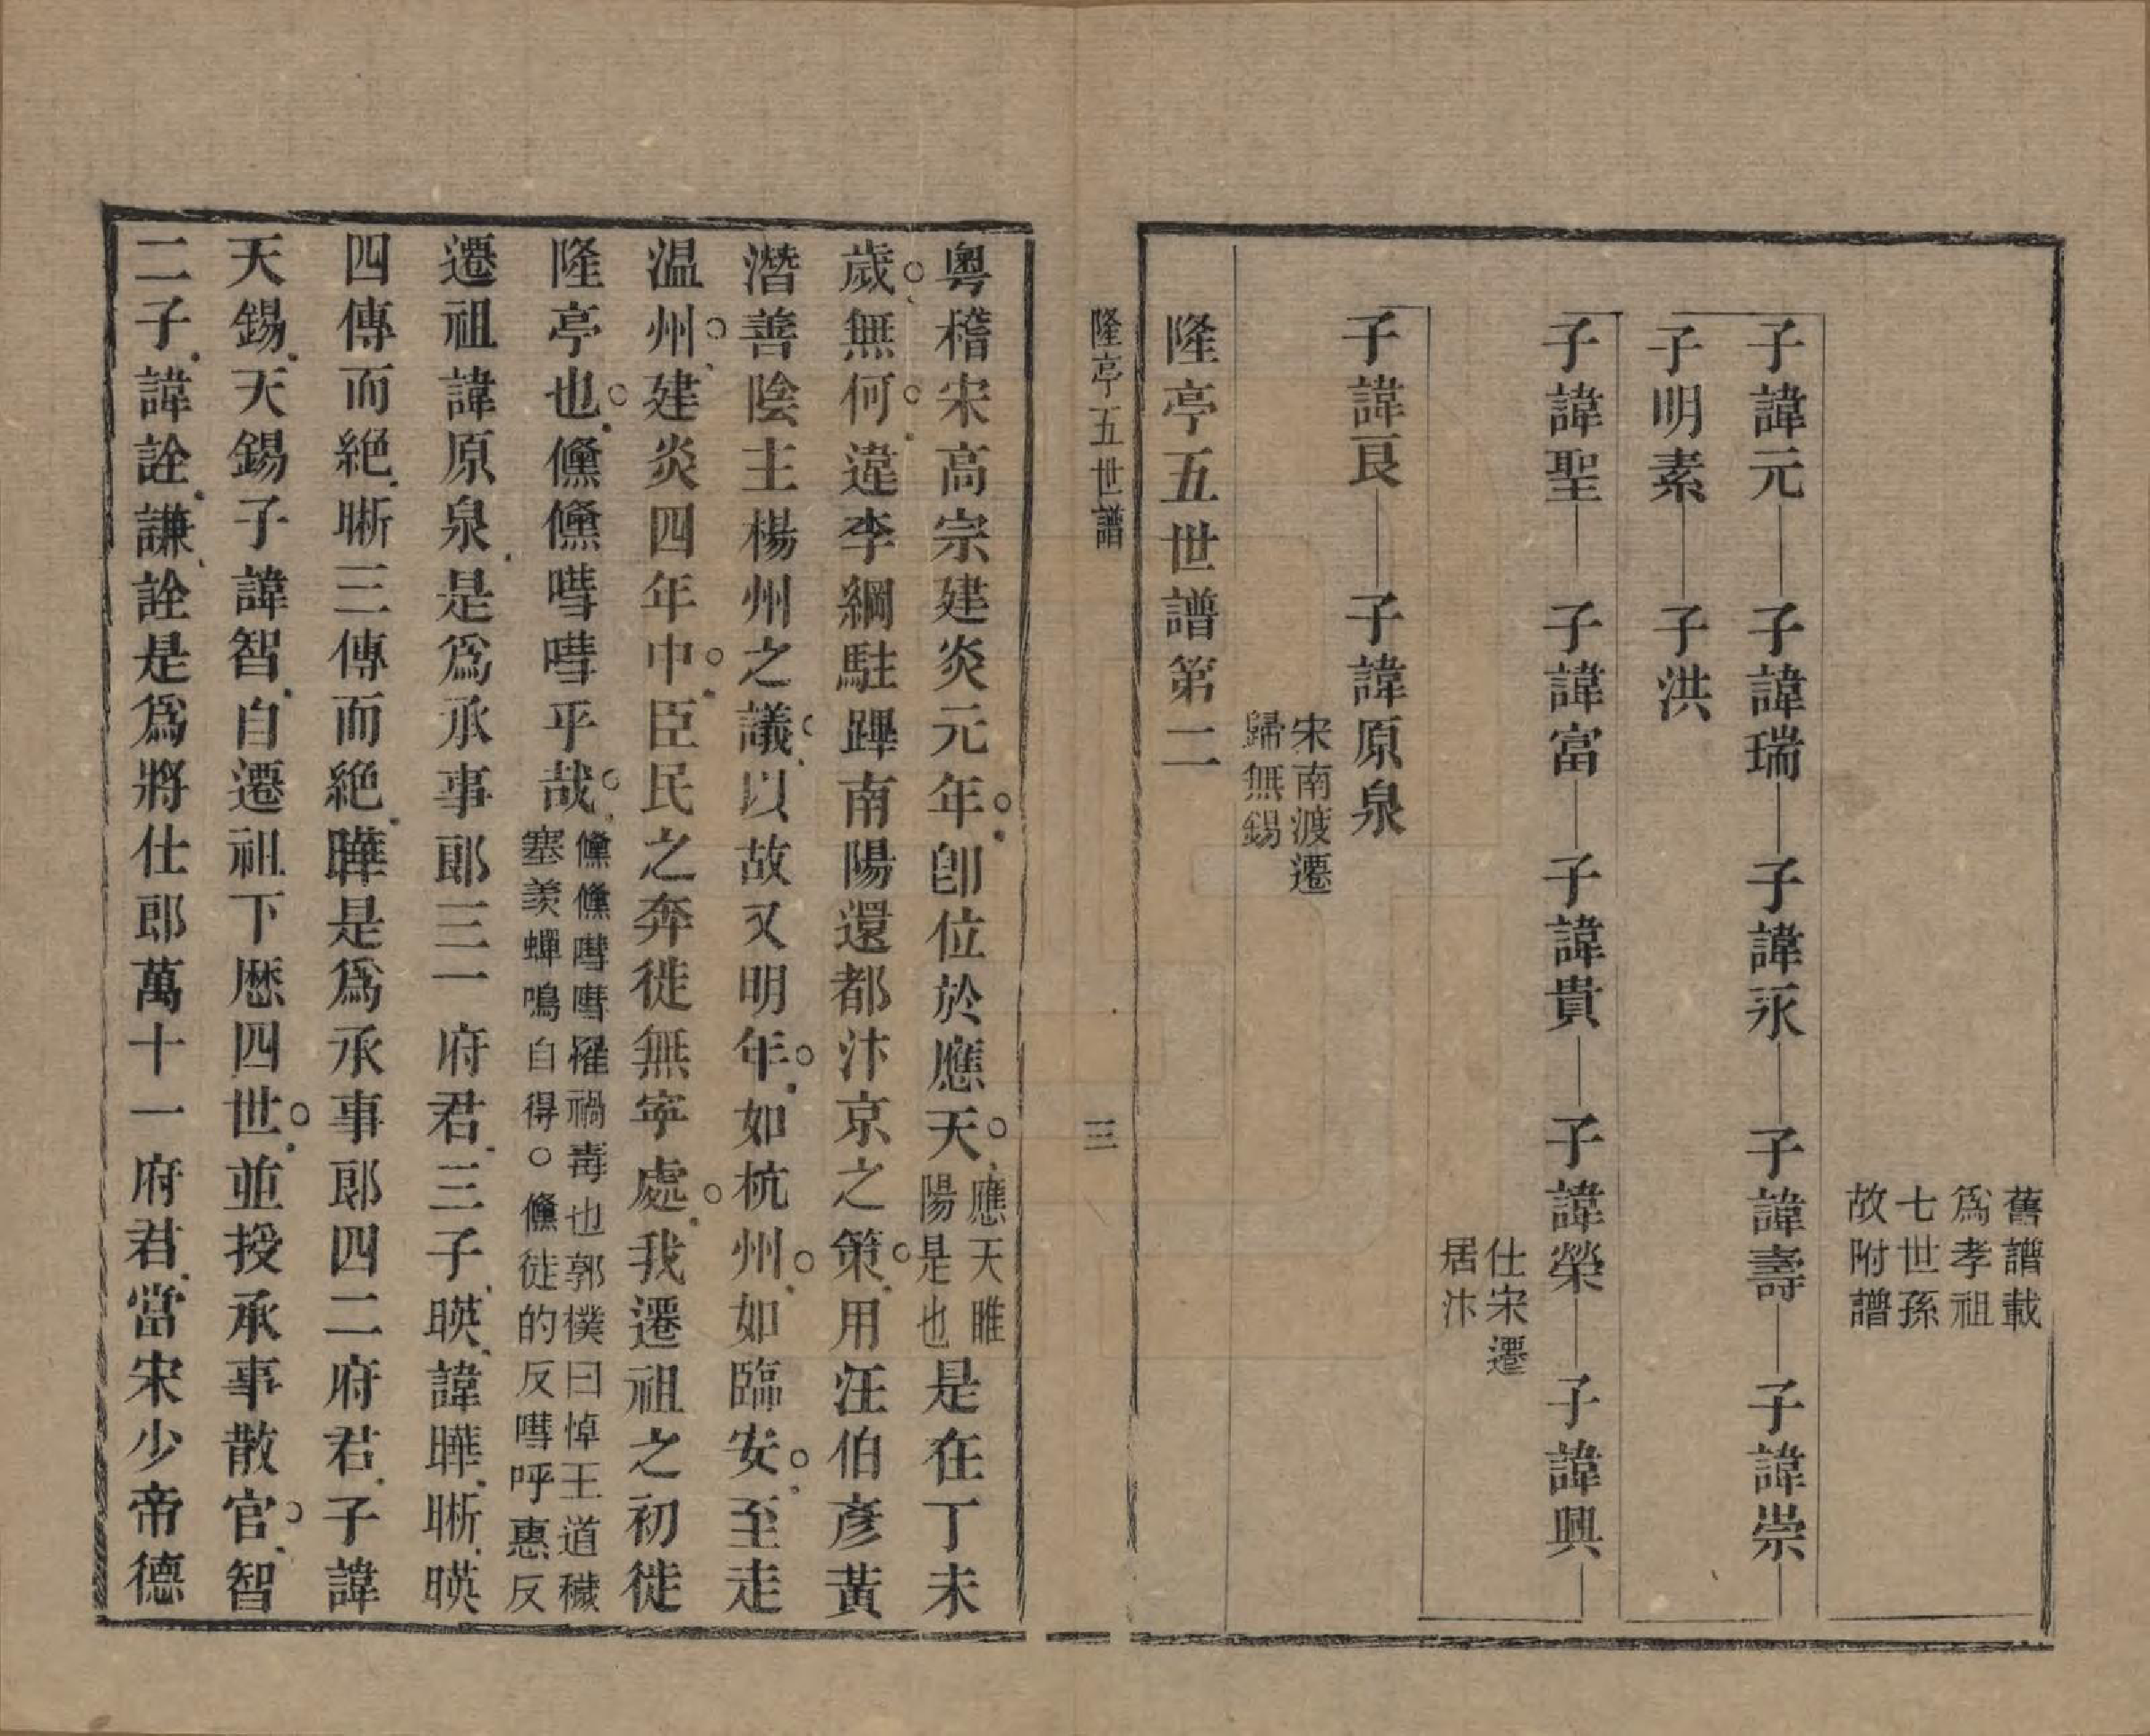 舊譜載
爲孝祖
七世孫
故附譜
子諱元 子諱瑞 子諱永 子諱壽 子諱崇
子明素 子洪
子諱聖 子諱富 子諱貴 子諱榮 子諱興
仕宋遷
居汴
子諱艮 子諱原泉
宋南渡遷
歸無錫
隆亭五世譜第二
隆亭五世譜 三
粵稽宋高宗建炎元年○卽位於應天○應天睢陽是也是在丁未
歲○無何○違李綱駐蹕南陽還都汴京之策○用汪伯彥黃
潛善陰主楊州之議○以故又明年○如杭州○如臨安○至走
温州○建炎四年中○臣民之奔徙無寧處○我遷祖之初徙
隆亭也○儵儵嘒嘒乎哉○儵儵嘒嘒罹禍毒也郭樸曰悼王道穢塞羨蟬鳴自得○儵徒的反嘒呼惠反
遷祖諱原泉是爲承事郎三一府君三子暎諱曄晰暎
四傳而絕晰三傳而絕曄是爲承事郎四二府君子諱
天錫天錫子諱智自遷祖下歷四世○並授承事散官○智
二子諱詮謙詮是爲將仕郎萬十一府君當宋少帝德